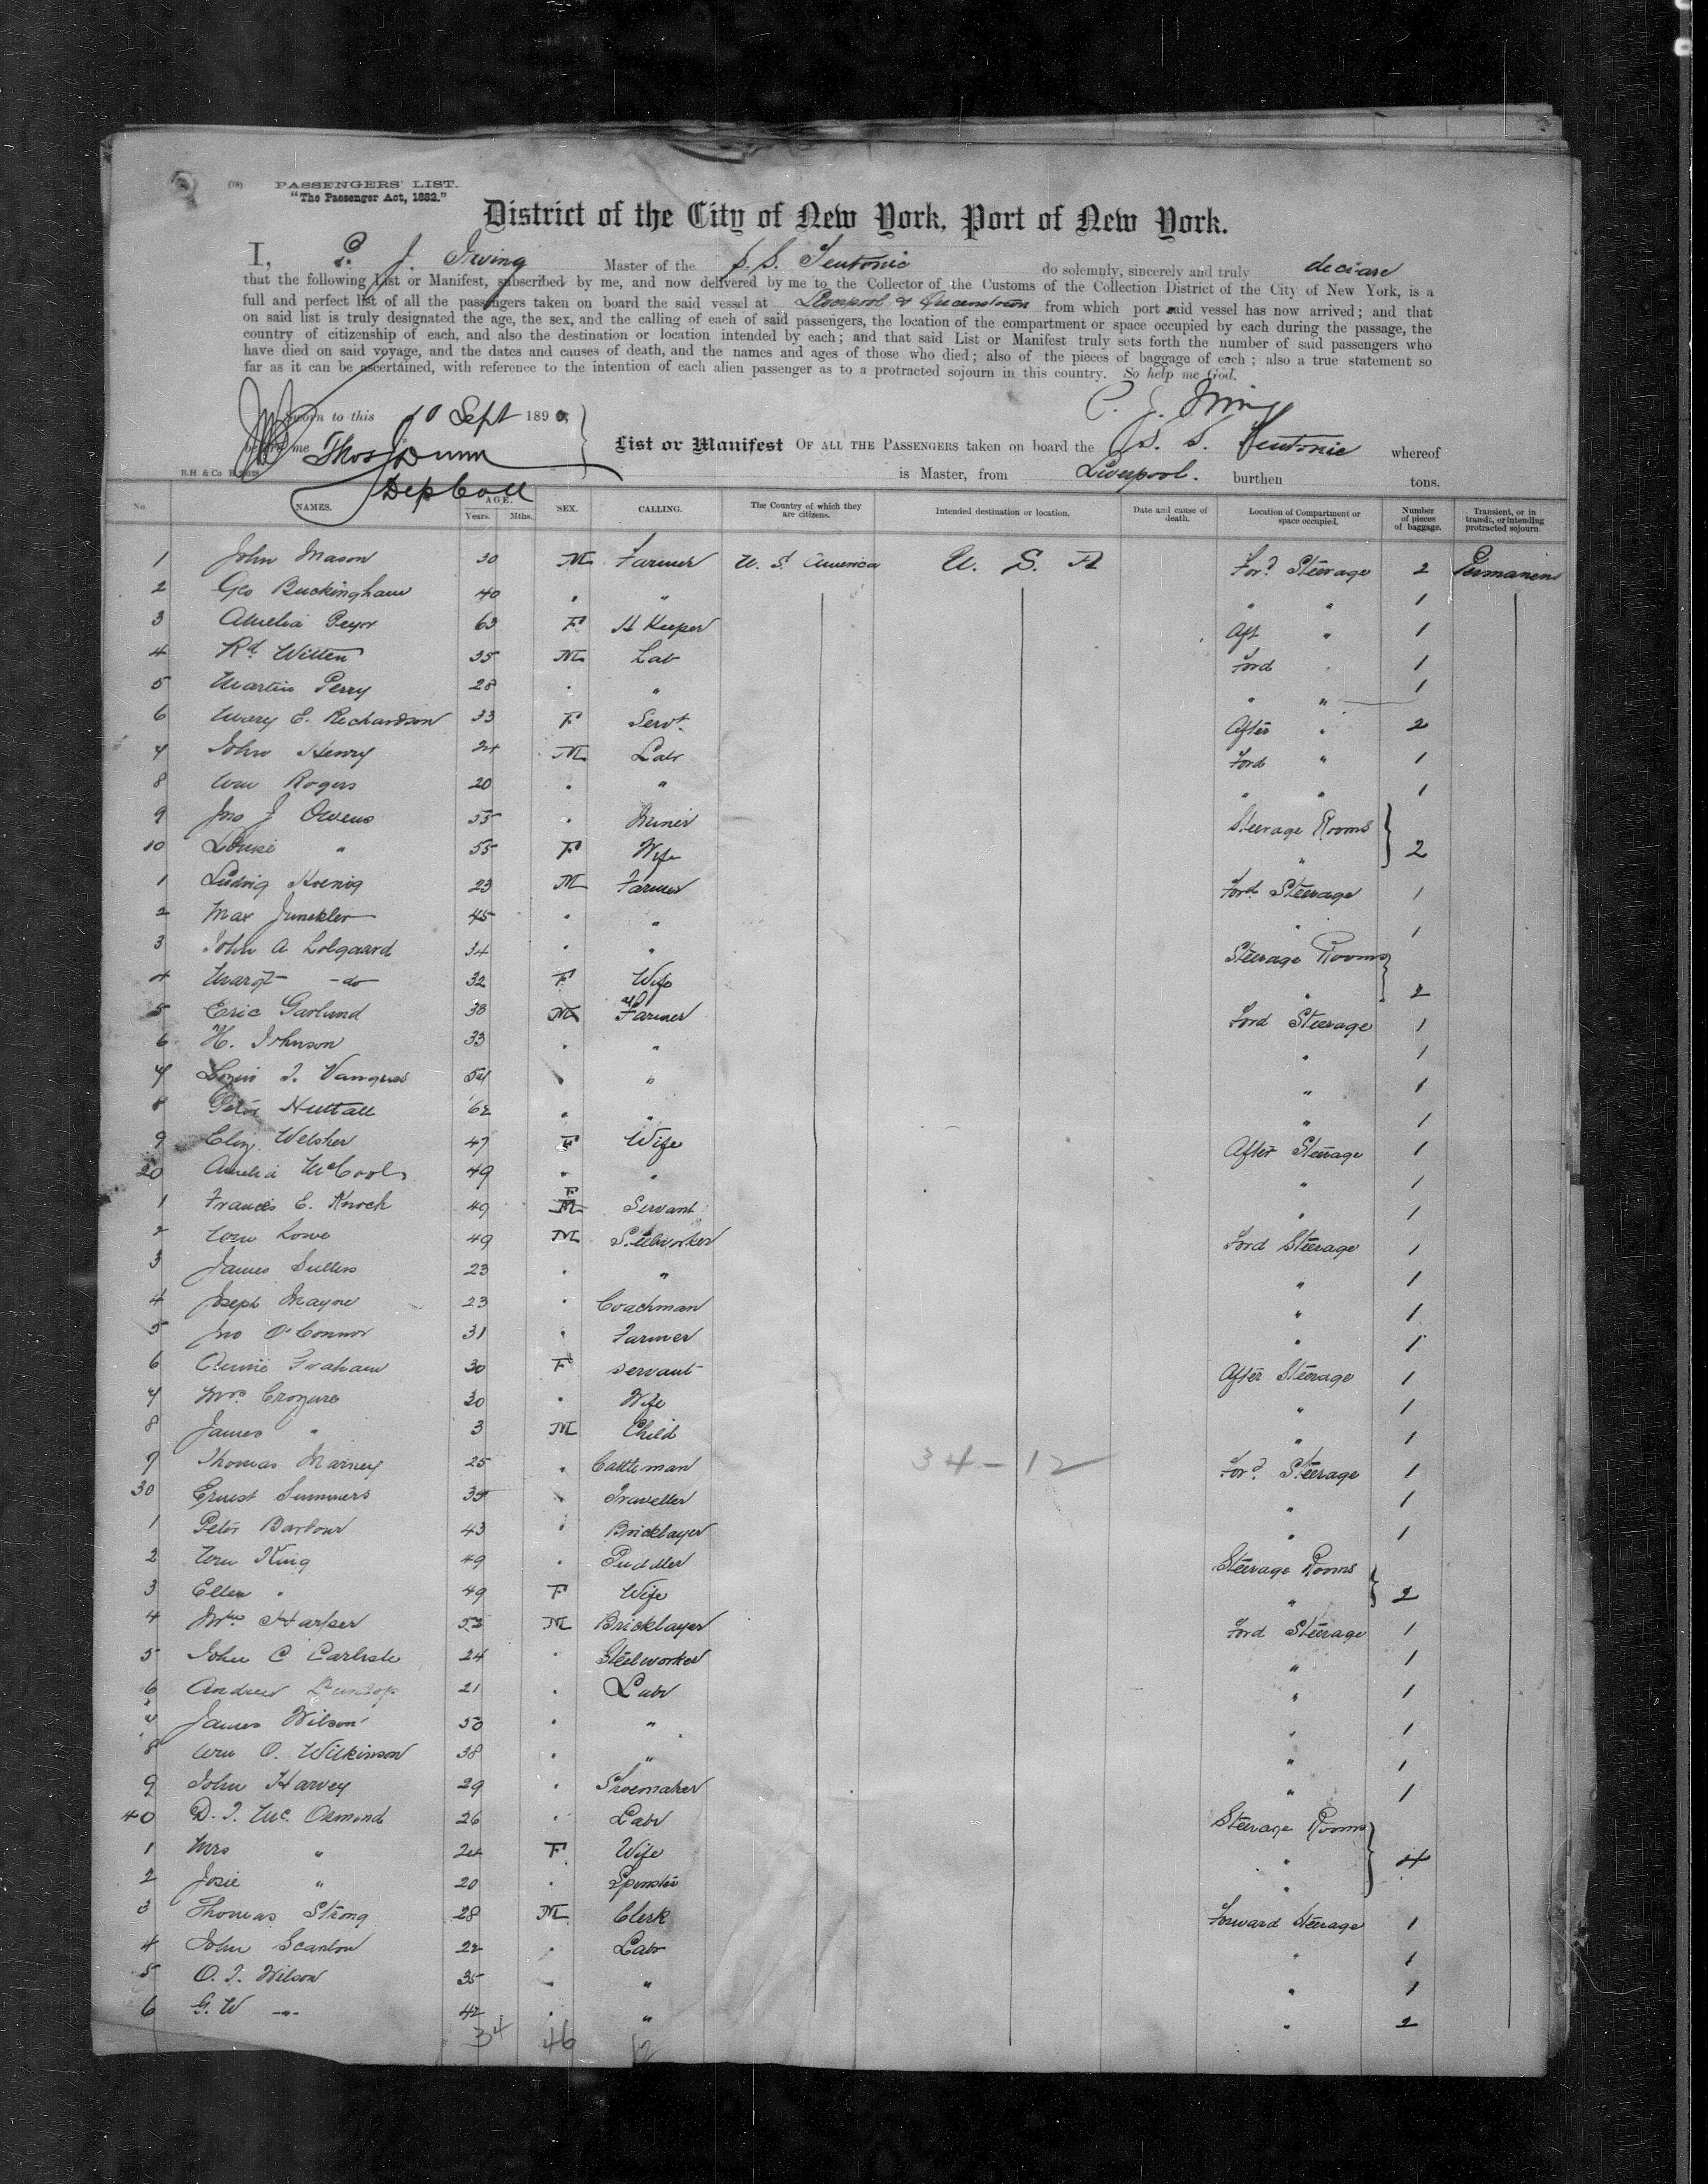 (18) PASSENGERS' LIST.
"The Passenger Act, 1882."
District of the City of New York, Port of New York.
I, P. J. Irving Master of the S. S. Teutonic do solemnly, sincerely and truly declare
that the following List or Manifest, subscribed by me, and now delivered by me to the Collector of the Customs of the Collection District of the City of New York, is a
full and perfect list of all the passengers taken on board the said vessel at Liverpool & Queenstown from which port said vessel has now arrived; and that
on said list is truly designated the age, the sex, and the calling of each of said passengers, the location of the compartment or space occupied by each during the passage, the
country of citizenship of each, and also the destination or location intended by each; and that said List or Manifest truly sets forth the number of said passengers who
have died on said voyage, and the dates and causes of death, and the names and ages of those who died; also of the pieces of baggage of each; also a true statement so
far as it can be ascertained, with reference to the intention of each alien passenger as to a protracted sojourn in this country. So help me God.
P. J. Irving
Sworn to this 10 Sept 1890,
before me Thos Dunn
Dep Coll
List or Manifest OF ALL THE PASSENGERS taken on board the S. S. Teutonic whereof
is Master, from Liverpool. burthen tons.
R.H. & Co
No. NAMES. AGE. Years. Mths. SEX. CALLING. The Country of which they are citizens. Intended destination or location. Date and cause of death. Location of Compartment or space occupied. Number of pieces of baggage. Transient, or in transit, or intending protracted sojourn.
1 John Mason 30 M Farmer U. S. America U. S. A Ford Steerage 2 Permanent
2 Geo Buckingham 40 " " " " 1
3 Amelia 63 F H Keeper Aft " 1
4 Rd Witten 35 M Lab Ford " 1
5 Martin Perry 28 " " " " 1
6 Mary E. Richardson 33 F Servt After " 2
7 John Henry 24 M Labr Ford " 1
8 Wm Rogers 20 " " " " 1
9 Jno J Owens 55 " Miner Steerage Rooms
10 Louise " 55 F Wife " 2
1 Ludwig Koenig 23 M Farmer Ford Steerage 1
2 Max Junckler 45 " " " 1
3 John A Lolgaard 34 " " Steerage Rooms
4 Margt -do- 32 F Wife " 2
5 Eric Garlund 38 M Farmer Ford Steerage 1
6 H. Johnson 33 " " " 1
7 Louis J. 54 " " " 1
8 Peter Nuttall 62 " " " 1
9 Eliz. Welsher 47 F Wife After Steerage 1
20 Amelia McCool 49 " " " 1
1 Frances E. Knoch 49 F M Servant " 1
2 Wm Lowe 49 M Steelworker Ford Steerage 1
3 James Sullers 23 " " " 1
4 Joseph Mayne 23 " Coachman " 1
5 Jno O'Connor 31 " Farmer " 1
6 Annie Graham 30 F Servant After Steerage 1
7 Mrs Crozure 30 " Wife " 1
8 James " 3 M Child " 1
9 Thomas Marney 25 " Cattleman 34-12 Ford Steerage 1
30 Ernest Summers 35 " Traveller " 1
1 Peter Barbour 43 " Bricklayer " 1
2 Wm King 49 " Puddler Steerage Rooms
3 Ellen " 49 F Wife " 2
4 Harper 52 M Bricklayer Ford Steerage 1
5 John C Carlisle 24 " Steelworker " 1
6 Andrew Dunlop 21 " Labr " 1
7 James Wilson 50 " " " 1
8 Wm O. Wilkinson 38 " " " 1
9 John Harvey 29 " Shoemaker " 1
40 D. J. Mc. Ormond 26 " Labr Steerage Rooms
1 Mrs " 24 F Wife " 4
2 Josie " 20 " Spinster "
3 Thomas Strong 28 M Clerk Forward Steerage 1
4 John Scanlon 22 " Labr " 1
5 O. J. Wilson 35 " " " 1
6 G. W -"- 42 " " " 2
34 46 12